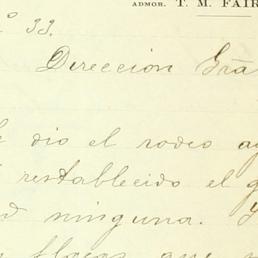 ADMOR. T. M. FAIR
º 33.
Dirección Grã
dio el rodeo
restablecido el g
ninguna.
flacas que